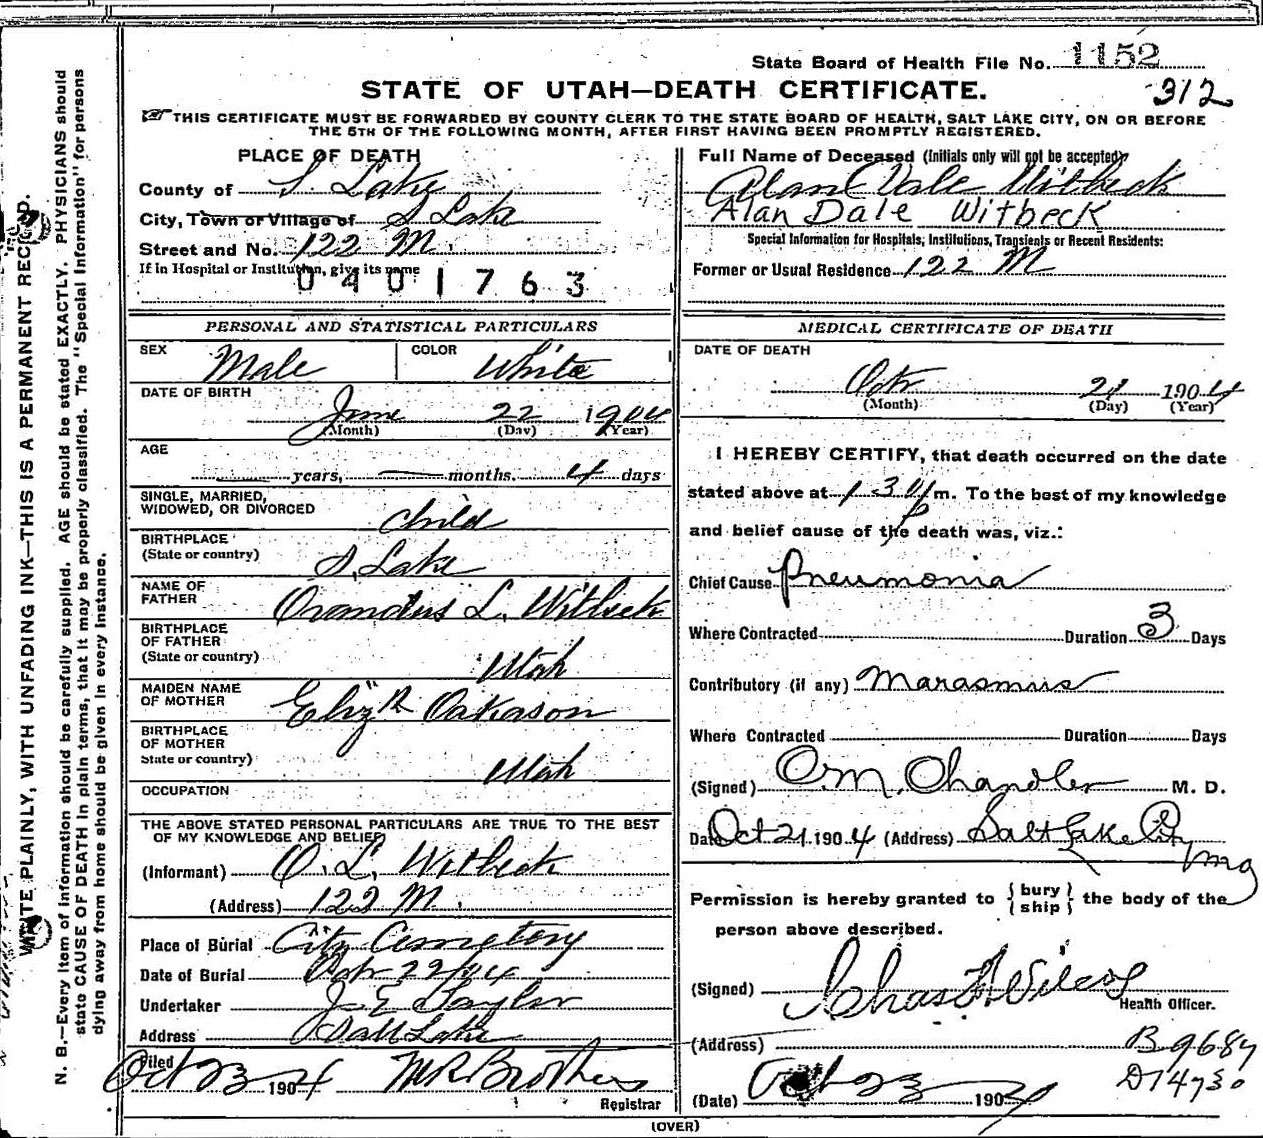 State Board of Health File No. 1152
312
STATE OF UTAH—DEATH CERTIFICATE.
THIS CERTIFICATE MUST BE FORWARDED BY COUNTY CLERK TO THE STATE BOARD OF HEALTH, SALT LAKE CITY, ON OR BEFORE
THE 5TH OF THE FOLLOWING MONTH, AFTER FIRST HAVING BEEN PROMPTLY REGISTERED.
WRITE PLAINLY, WITH UNFADING INK—THIS IS A PERMANENT RECORD.
N. B.—Every item of information should be carefully supplied. AGE should be stated EXACTLY. PHYSICIANS should
state CAUSE OF DEATH in plain terms, that it may be properly classified. The "Special Information" for persons
dying away from home should be given in every instance.
PLACE OF DEATH
County of S. Lake
City, Town or Village of S Lake
Street and No. 122 M.
If in Hospital or Institution, give its name
0401763
PERSONAL AND STATISTICAL PARTICULARS
SEX Male COLOR White
DATE OF BIRTH
June 22 1904
(Month) (Day) (Year)
AGE
years, months. 4 days
SINGLE, MARRIED,
WIDOWED, OR DIVORCED child
BIRTHPLACE
(State or country) S. Lake
NAME OF
FATHER Orandus L. Witbeck
BIRTHPLACE
OF FATHER
(State or country) Utah
MAIDEN NAME
OF MOTHER Eliz R Oakason
BIRTHPLACE
OF MOTHER
State or country) Utah
OCCUPATION
THE ABOVE STATED PERSONAL PARTICULARS ARE TRUE TO THE BEST
OF MY KNOWLEDGE AND BELIEF
(Informant) O. L. Witbeck
(Address) 122 M.
Place of Burial City Cemetery
Date of Burial Oct 22/04
Undertaker J. E Taylor
Address Salt Lake
Filed Oct 23 1904 M R Brothers
Registrar
Full Name of Deceased (Initials only will not be accepted)
Alan Dale Witbeck
Alan Dale Witbeck
Special Information for Hospitals, Institutions, Transients or Recent Residents:
Former or Usual Residence 122 M
MEDICAL CERTIFICATE OF DEATH
DATE OF DEATH
Oct 21 1904
(Month) (Day) (Year)
I HEREBY CERTIFY, that death occurred on the date
stated above at 1 30 p m. To the best of my knowledge
and belief cause of the death was, viz.:
Chief Cause Pneumonia
Where Contracted Duration 3 Days
Contributory (if any) Marasmus
Where Contracted Duration Days
(Signed) O.M. Chandler M. D.
Date Oct 21 1904 (Address) Salt Lake City
Permission is hereby granted to { bury / ship } the body of the
person above described.
(Signed) Chas F Wilcox
Health Officer.
(Address) B 9684
D14730
(Date) Oct 23 1904
(OVER)